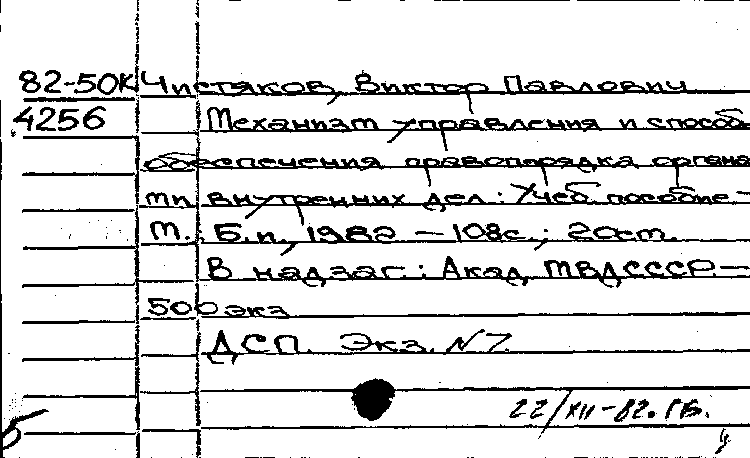 82-50К Чистяков, Виктор Павлович
4256 Механизм управления и способ
обеспечения правопорядка органа
ми внутренних дел: Учеб. пособие-
М.: Б.и., 1982 - 108с.; 20см.
В надзаг.: Акад. МВД СССР -
500 экз
ДСП. Экз. N7
22/XII-82. ГБ.